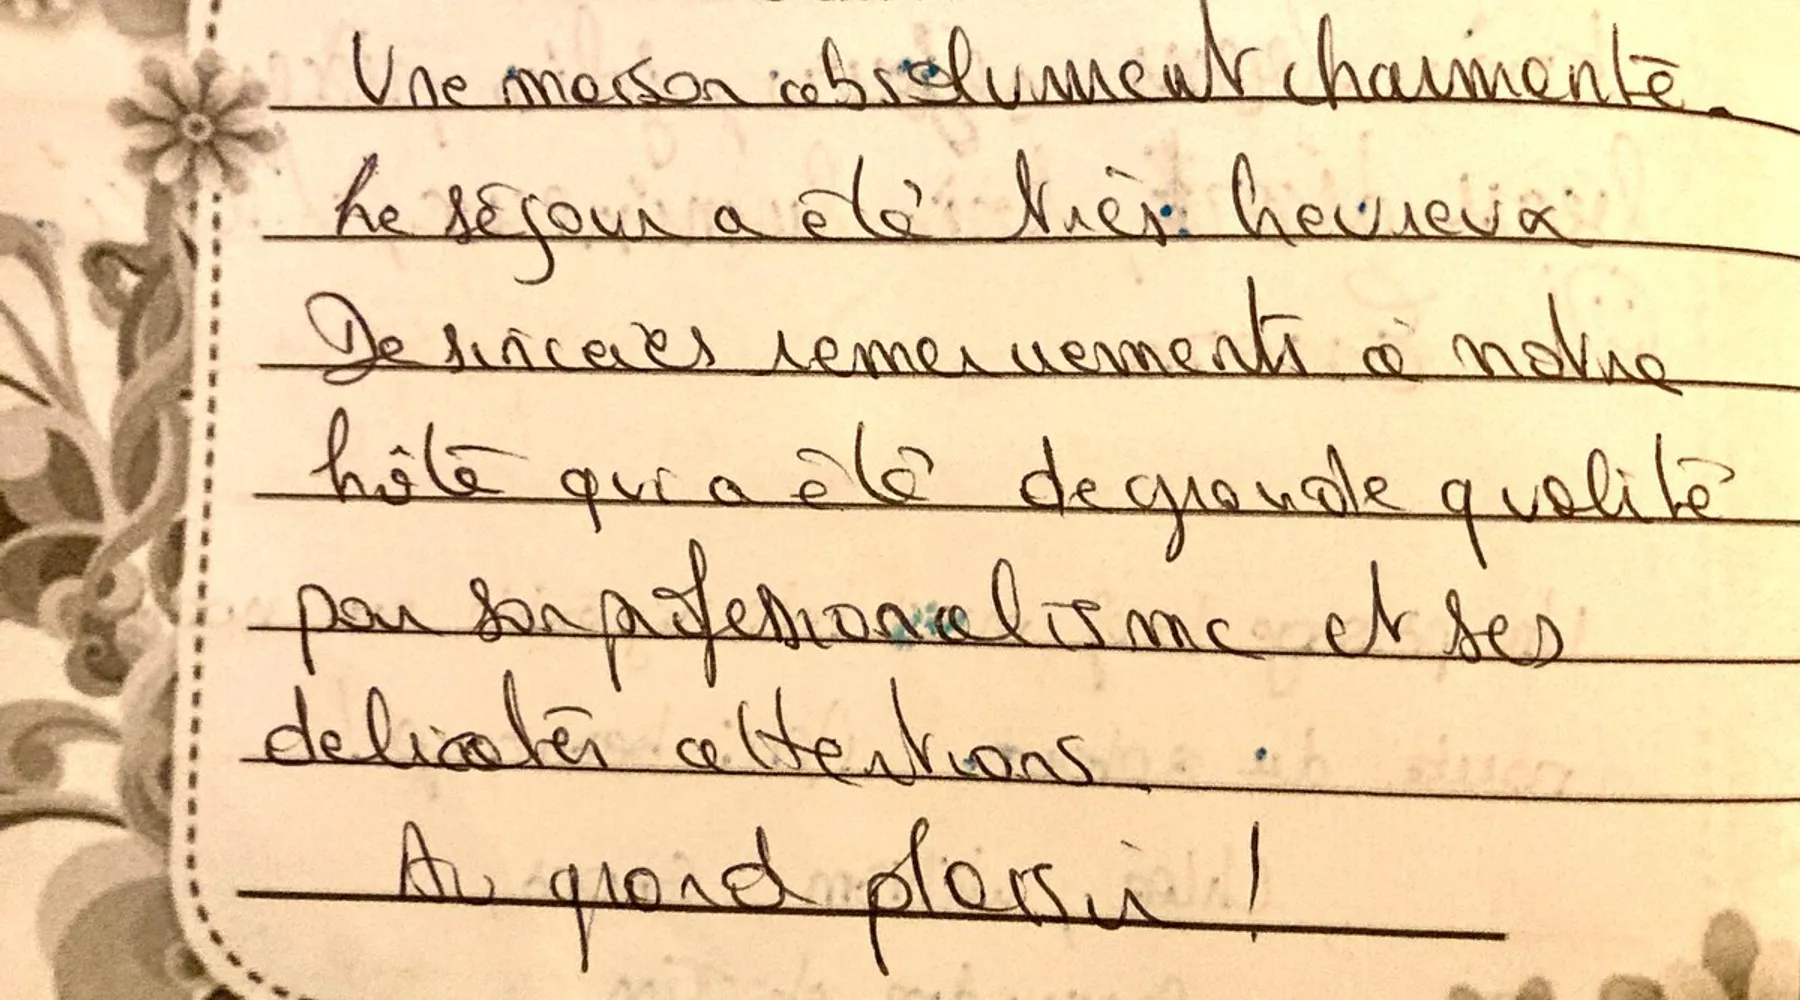 Une maison absolument charmante.
Le séjour a été très heureux
De sincères remerciements à notre
hôte qui a été de grande qualité
par son professionalisme et ses
delicates attentions
Au grand plaisir !